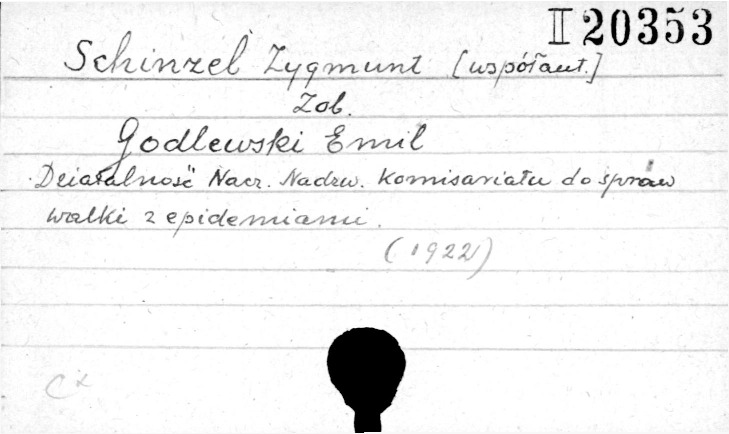 II 20353
Schinzel Zygmunt [współaut.]
Zob.
Godlewski Emil
Działalność Nacz. Nadzw. Komisariatu do spraw
walki z epidemiami.
(1922)